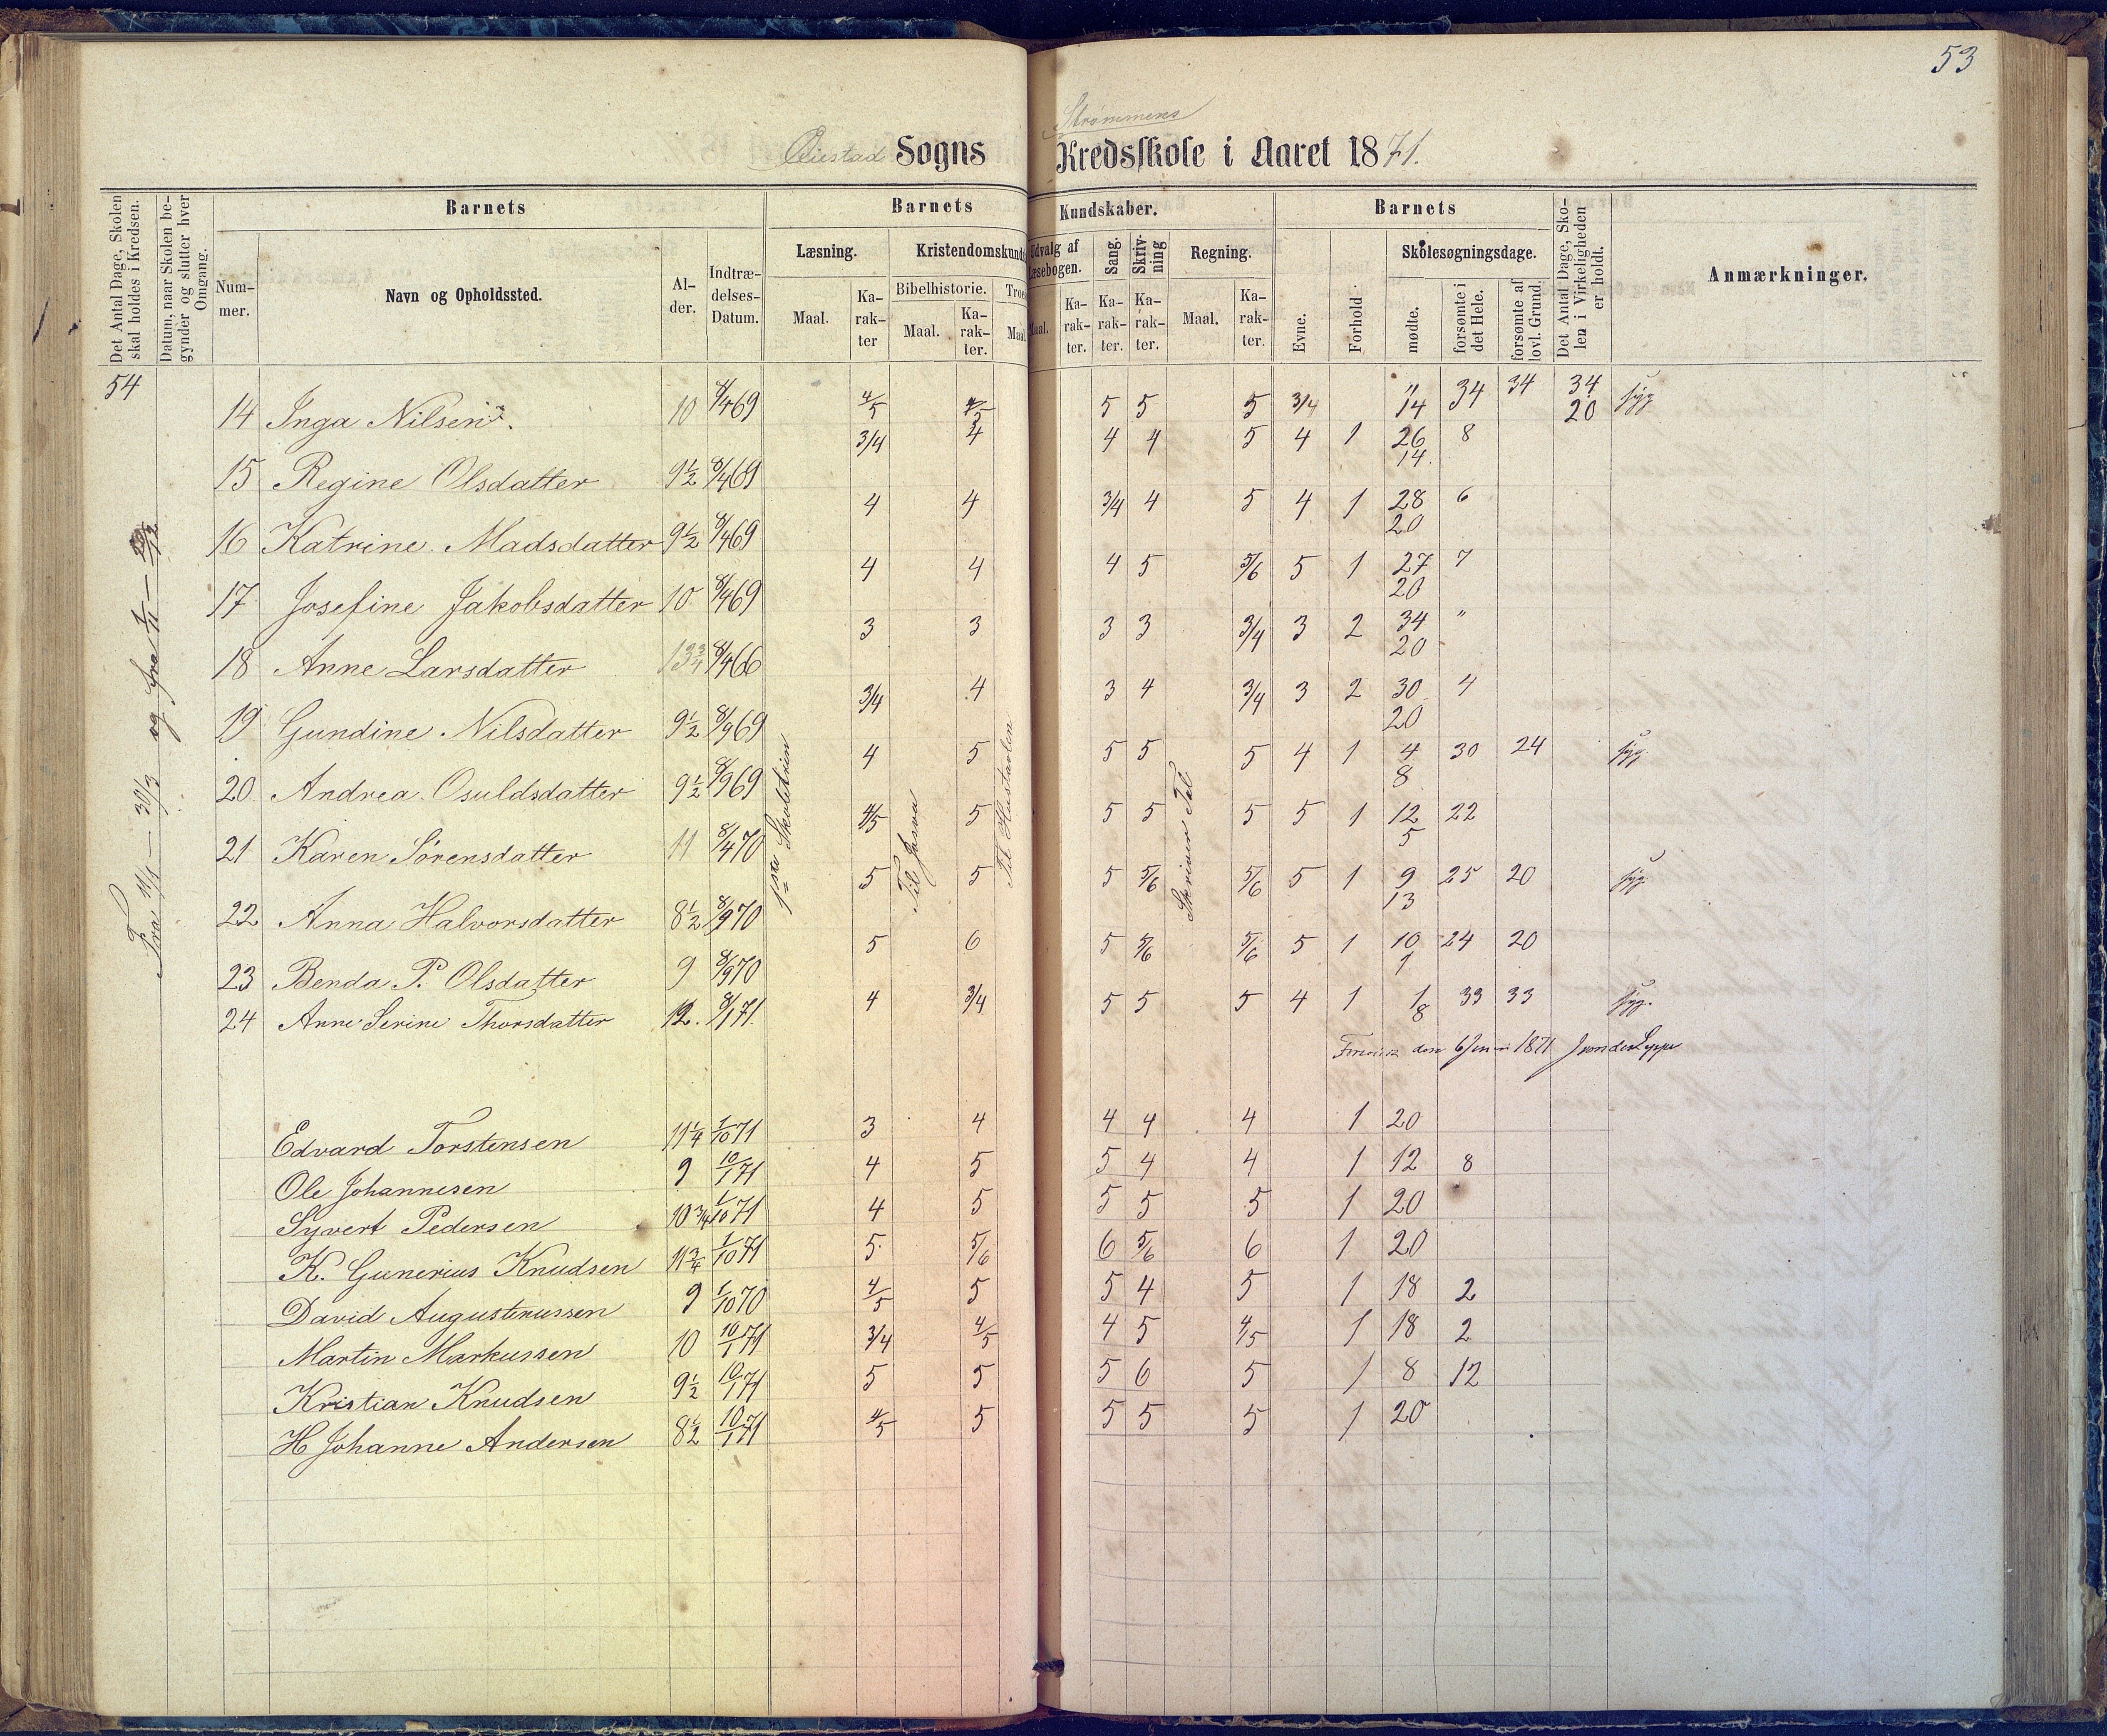 53
Strømmens
Øiestad Sogns Kredsskole i Aaret 1871.
Det Antal Dage, Skolen skal holdes i Kredsen.
Datum, naar Skolen begynder og slutter hver Omgang.
Barnets
Barnets Kundskaber.
Barnets
Det Antal Dage, Skolen i Virkeligheden er holdt.
Anmærkninger.
Nummer.
Navn og Opholdssted.
Alder.
Indtrædelses-Datum.
Læsning.
Kristendomskunds
Udvalg af Læsebogen.
Sang.
Skrivning
Regning.
Evne.
Forhold
Skolesøgningsdage.
Maal.
Karakter
Bibelhistorie.
Maal.
Karakter.
Troes
Maal
Maal.
Karakter.
Karakter.
Karakter.
Maal.
Karakter.
mødte.
forsømte i det Hele.
forsømte af lovl. Grund.
54
Fra 11/1 — 30/3 og fra 1/11 — 20/12
1ste Skoletrin
Til Josva
Til Hustavlen
Skriver Tal
14 Inga Nilsen 10 8/4 69 4/5 4/5 5 5 5 3/4 " 34 34 34 syg
14 20
3/4 4 4 4 5 4 1 26 8
14
15 Regine Olsdatter 9 1/2 8/4 69
4 4 3/4 4 5 4 1 28 6
20
16 Katrine Madsdatter 9 1/2 8/4 69
4 4 4 5 5/6 5 1 27 7
20
17 Josefine Jakobsdatter 10 8/4 69
3 3 3 3 3/4 3 2 34 "
20
18 Anne Larsdatter 13 3/4 8/4 66
3/4 4 3 4 3/4 3 2 30 4
20
19 Gundine Nilsdatter 9 1/2 8/9 69
4 5 5 5 5 4 1 4 30 24 syg.
8
20 Andrea Osuldsdatter 9 1/2 8/9 69
4/5 5 5 5 5 5 1 12 22
5
21 Karen Sørensdatter 11 8/4 70
5 5 5 5/6 5/6 5 1 9 25 20 syg
13
22 Anna Halvorsdatter 8 1/2 8/9 70
5 6 5 5/6 5/6 5 1 10 24 20
1
23 Benda P. Olsdatter 9 8/9 70
4 3/4 5 5 5 4 1 1 33 33 syg.
8
24 Anne Serine Thorsdatter 12. 8/1 71.
den 6 1871
Edvard Torstensen 11 1/4 1/10 71 3 4 4 4 4 1 20
Ole Johannesen 9 10/1 71 4 5 5 4 4 1 12 8
Syvert Pedersen 10 3/4 1/10 71 4 5 5 5 5 1 20
K. Gunerius Knudsen 11 3/4 1/10 71 5 5/6 6 5/6 6 1 20
David Augustinussen 9 1/10 70 4/5 5 5 4 5 1 18 2
Martin Markussen 10 10/1 71 3/4 4/5 4 5 4/5 1 18 2
Kristian Knudsen 9 1/2 10/1 71 5 5 5 6 5 1 8 12
H Johanne Andersen 8 1/2 10/1 71 4/5 5 5 5 5 1 20